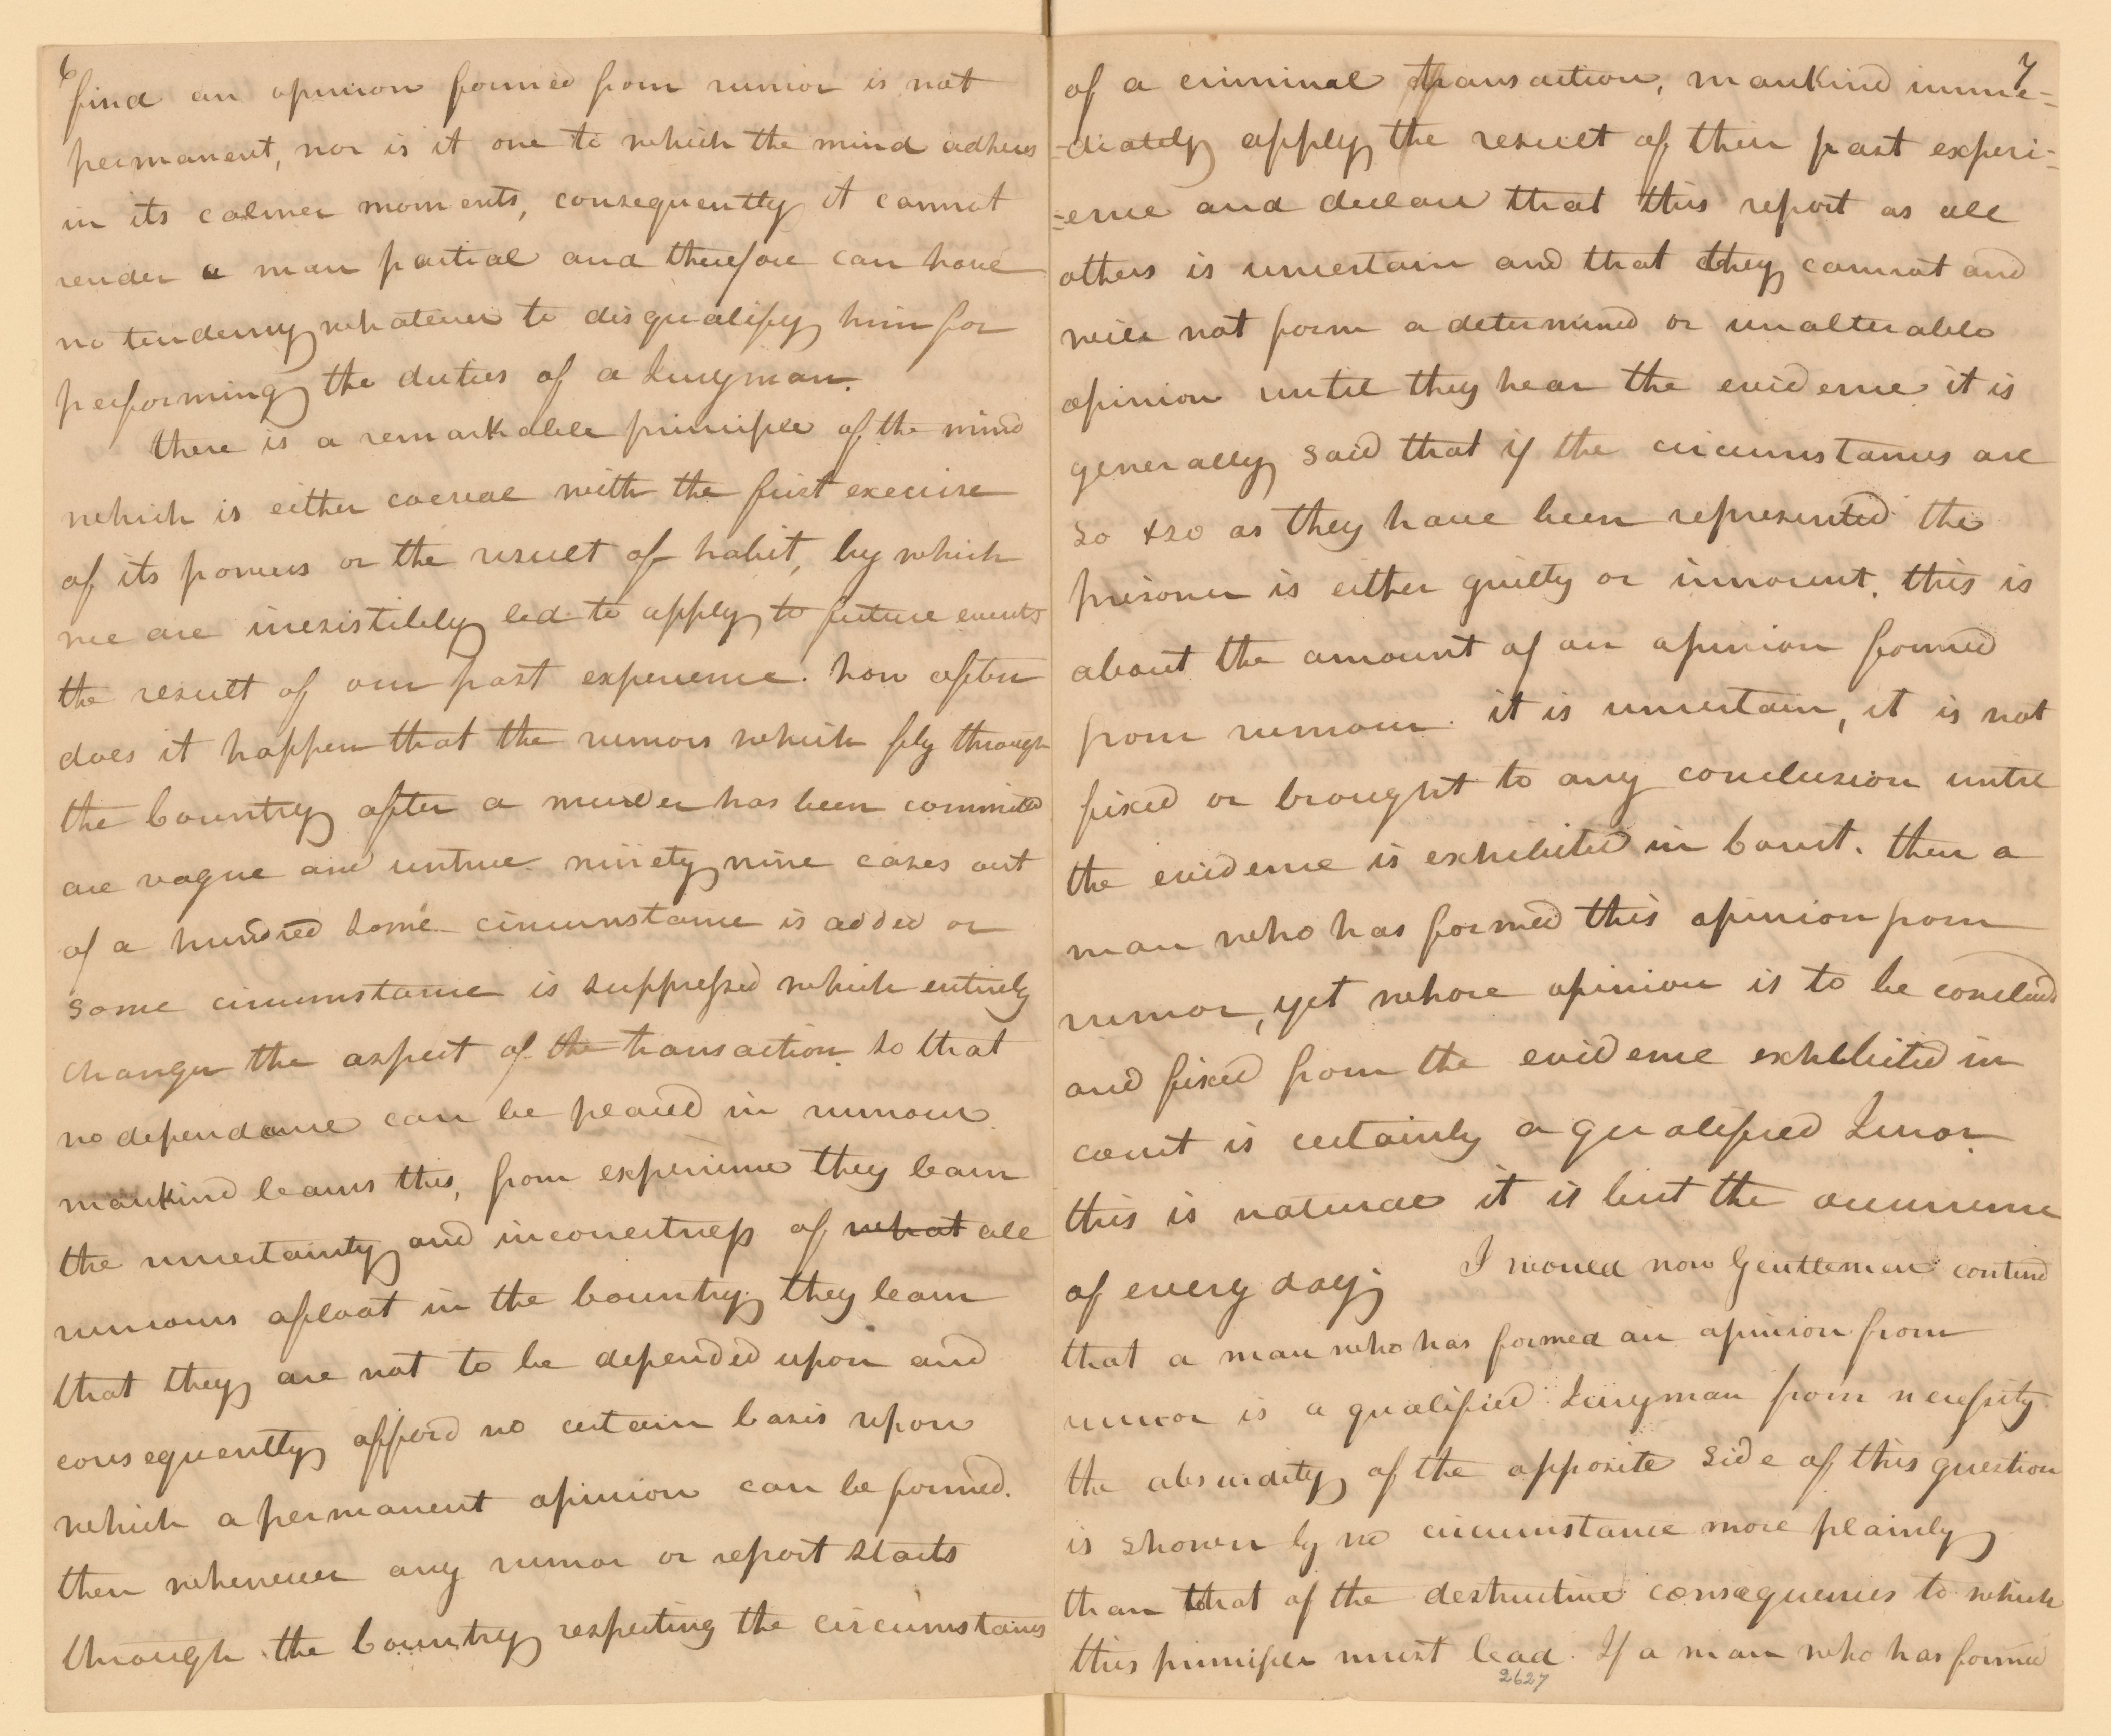 6
find an opinion formed from rumor is not
permanent, nor is it one to which the mind adheres
in its calmer moments, consequently it cannot
render a man partial and therefore can have
no tendency whatever to disqualify him for
performing the duties of a Juryman.
there is a remarkable principle of the mind
which is either coeval with the first exercise
of its powers or the result of habit, by which
we are irresistibly led to apply to future events
the result of our past experience. how often
does it happen that the rumors which fly through
the Country after a murder has been committed
are vague and untrue ninety nine cases out
of a hundred some circumstance is added or
some circumstance is suppressed which entirely
changes the aspect of the transaction so that
no dependance can be placed in rumour.
mankind learns this, from experience they learn
the uncertainty and incorrectness of what all
rumours afloat in the Country. they learn
that they are not to be depended upon and
consequently afford no certain basis upon
which a permanent opinion can be formed.
then whenever any rumor or report starts
through the Country respecting the circumstances
7
of a criminal transaction, mankind imme=
=diately apply the result of their past experi=
=ence and declare that this report as all
others is uncertain and that they cannot and
will not form a determined or unalterable
opinion until they hear the evidence it is
generally said that if the circumstances are
so & so as they have been represented the
prisoner is either guilty or innocent. this is
about the amount of an opinion formed
from rumour. it is uncertain, it is not
fixed or brought to any conclusion until
the evidence is exhibited in Court. then a
man who has formed this opinion from
rumor, yet whose opinion is to be concluded
and fixed from the evidence exhibited in
court is certainly a qualified Juror.
this is natural it is but the occurrence
of every day; I would now Gentlemen contend
that a man who has formed an opinion from
rumor is a qualified Juryman from necessity
the absurdity of the opposite side of this question
is shown by no circumstance more plainly
than that of the destructive consequences to which
this principle must lead. If a man who has formed
2627